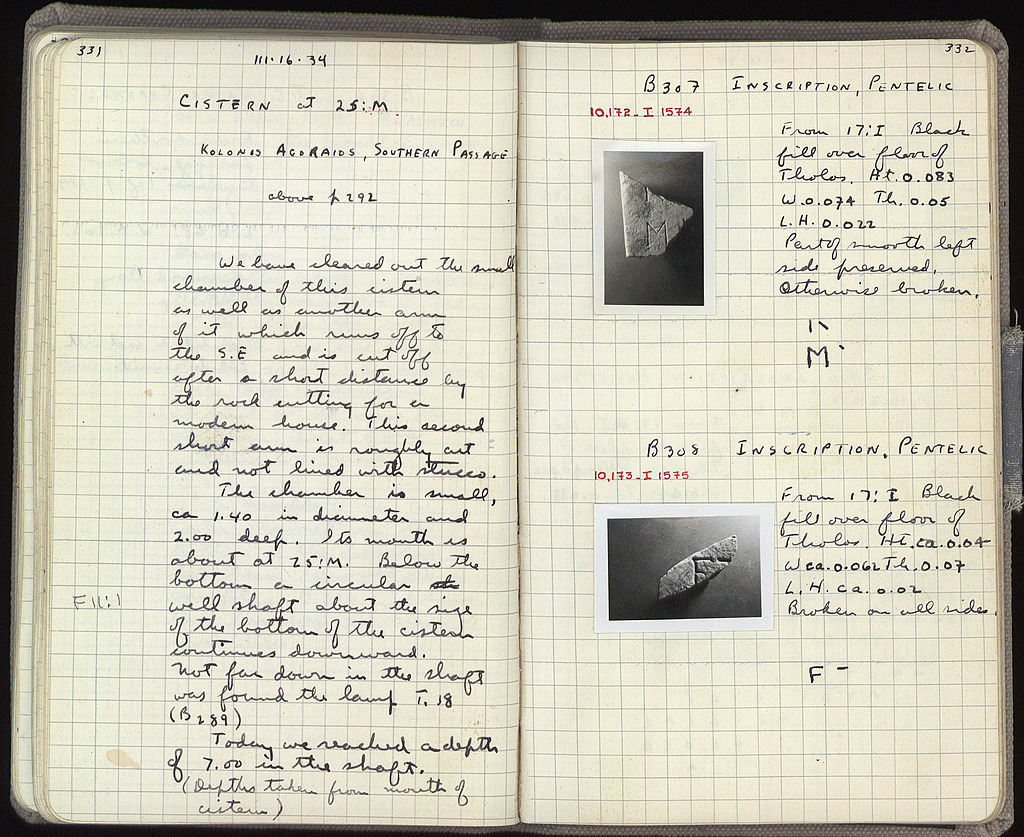 331
111·16·34
CISTERN at 25:M.
KOLONOS AGORAIOS, SOUTHERN PASSAGE
above p 292
We have cleared out the small
chamber of this cistern
as well as another arm
of it which runs off to
the S.E and is cut off
after a short distance by
the rock cutting for a
modern house. This second
short arm is roughly cut
and not lined with stucco.
The chamber is small,
ca 1.40 in diameter and
2.00 deep. Its mouth is
about at 25:M. Below the
bottom a circular
F11:1
well shaft about the size
of the bottom of the cistern
continues downward.
Not far down in the shaft
was found the lamp T. 18
(B289)
Today we reached a depth
of 7.00 in the shaft.
(Depths taken from mouth of
cistern)
332
B307 INSCRIPTION, PENTELIC
10,172 - I 1574
From 17:I Black
fill over floor of
Tholos. Ht. 0.083
W. 0.074 Th. 0.05
L.H. 0.022
Part of smooth left
side preserved.
Otherwise broken.
M
B308 INSCRIPTION, PENTELIC
10,173 - I 1575
From 17:I Black
fill over floor of
Tholos. Ht. ca. 0.04
W ca. 0.062 Th. 0.07
L.H. ca. 0.02
Broken on all sides.
F -